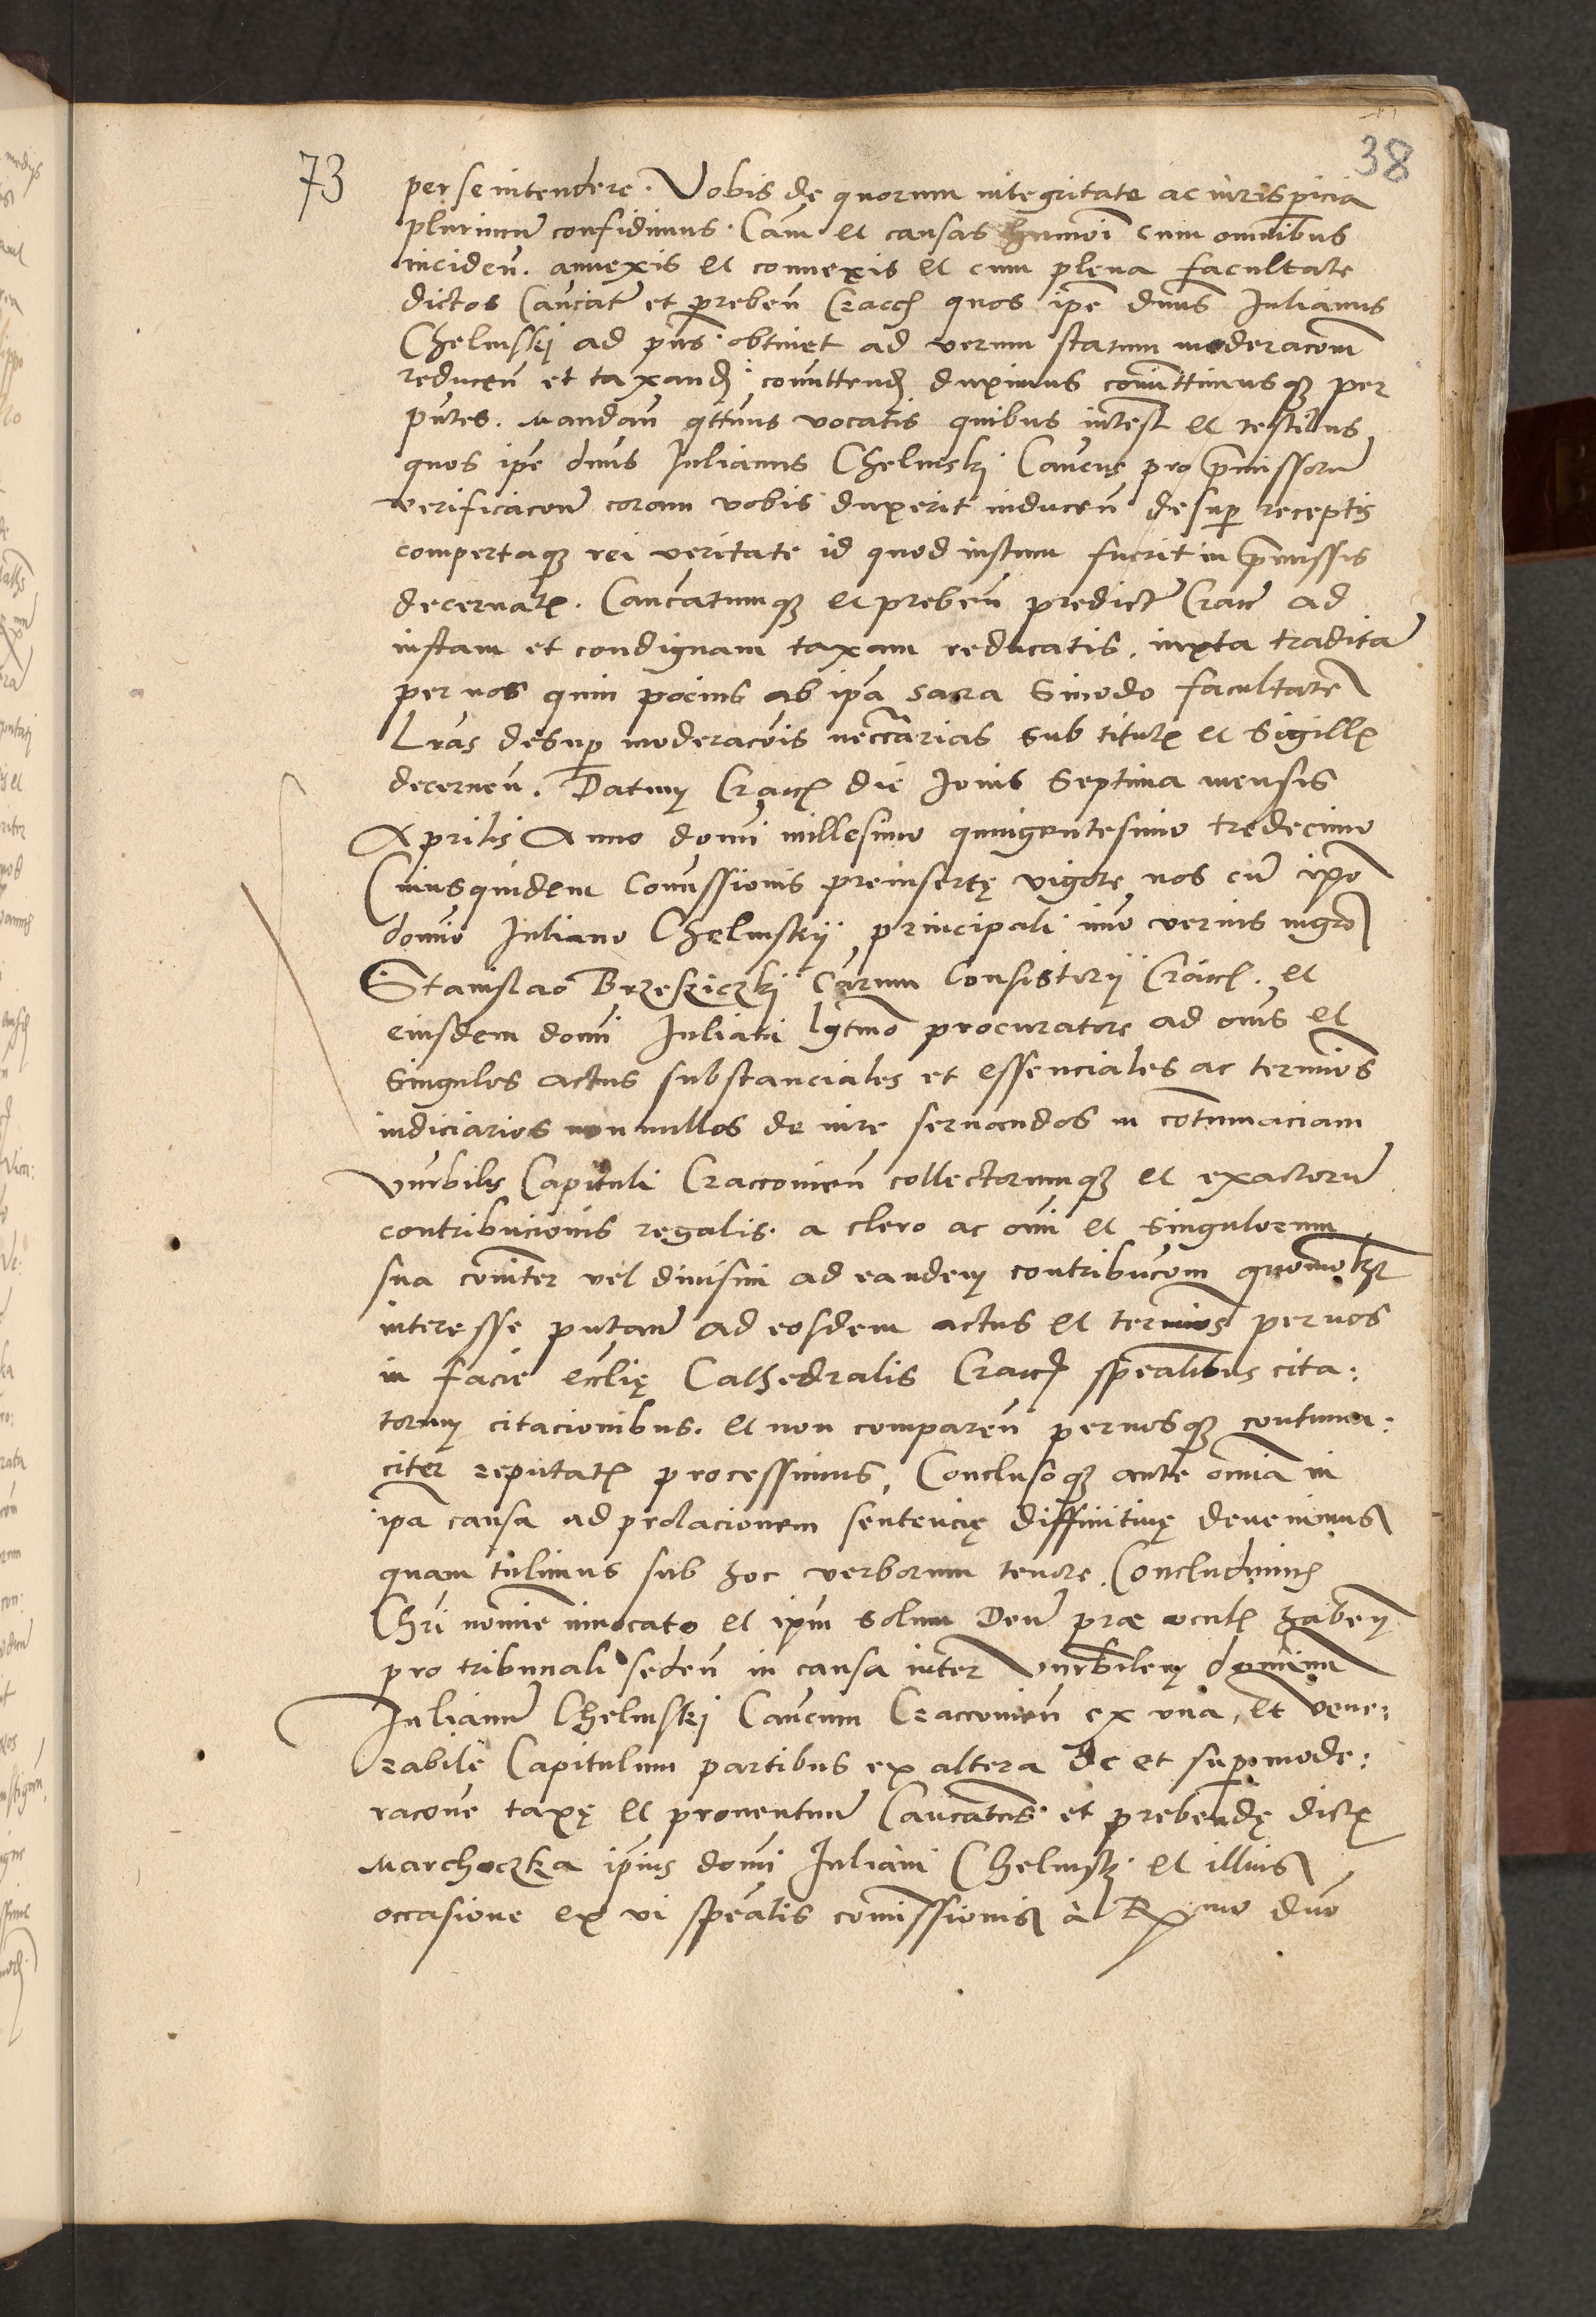 73
38
per se intendere. Vobis de quorum integritate ac iurispicia
plurimum confidimus. Cam et causas humoi cum omnibus
inciden. annexis et connexis et cum plena facultate
dictos Cancat et preben Cracch quos ipe dnus Julianus
Chelmskj ad pns obtinet ad verum statum moderacom
reducen et taxand committend duximus comittimusq per
pntes. Mandan qttnus vocatis quibus intest et testibus
quos ipe dnus Julianus Chelmskj Cancus pro pmissoru
verificacone coram vobis duxerit inducen desup receptis
compertaq rei veritate id quod iustum fuerit in pmissis
decernat. Cancatumq et preben predict Cracc ad
iustam et condignam taxam reducatis. iuxta tradita
per nos quin pocius ab ipa sacra Sinodo facultate
Lras desup moderacois neccarias sub titul et Sigill
decernen. Datum Cracc die Jouis Septima mensis
Aprilis Anno domi millesimo quingentesimo tredecimo
Cuiusquidem Comissionis preinsertę vigore nos cu ipo
domio Juliano Chelmskij principali imo verius mgro
Stanislao Brzesziczkj Carum Consistorij Cracc. et
eiusdem domi Juliani lgtmo procuratore ad oms et
singulos actus substanciales et essenciales ac termios
iudiciarios nonnullos de iure seruandos in contumaciam
vnrbilis Capituli Cracouien collectorumq et exactoru
contribucionis regalis. a clero ac omi et singulorum
sua comiter vel diuisim ad eandem contribucom quomolzt
interesse putan ad eosdem actus et termios per nos
in facie ecclię Cathedralis Cracc spealibus cita:
torum citacionibus. et non comparen per nosq contuma:
citer reputat processimus, Conclusoq ante omia in
ipa causa ad prolacionem sentencię diffinitiuę deuenimus
quam tulimus sub hoc verborum tenore. Concludimus
Chri nomie inuocato et ipm solum Deu prae ocul haben
pro tribunali seden in causa inter vnrbilem dominu
Julianu Chelmskj Cancum Cracouien ex vna, et vene:
rabile Capitulum partibus ex altera de et sup mode:
racone taxę et prouentuu Cancatus et prebendę dict
Marchoczka ipius domi Juliani Chelmsk et illius
occasione ex vi spealis comissionis a Rmo dno